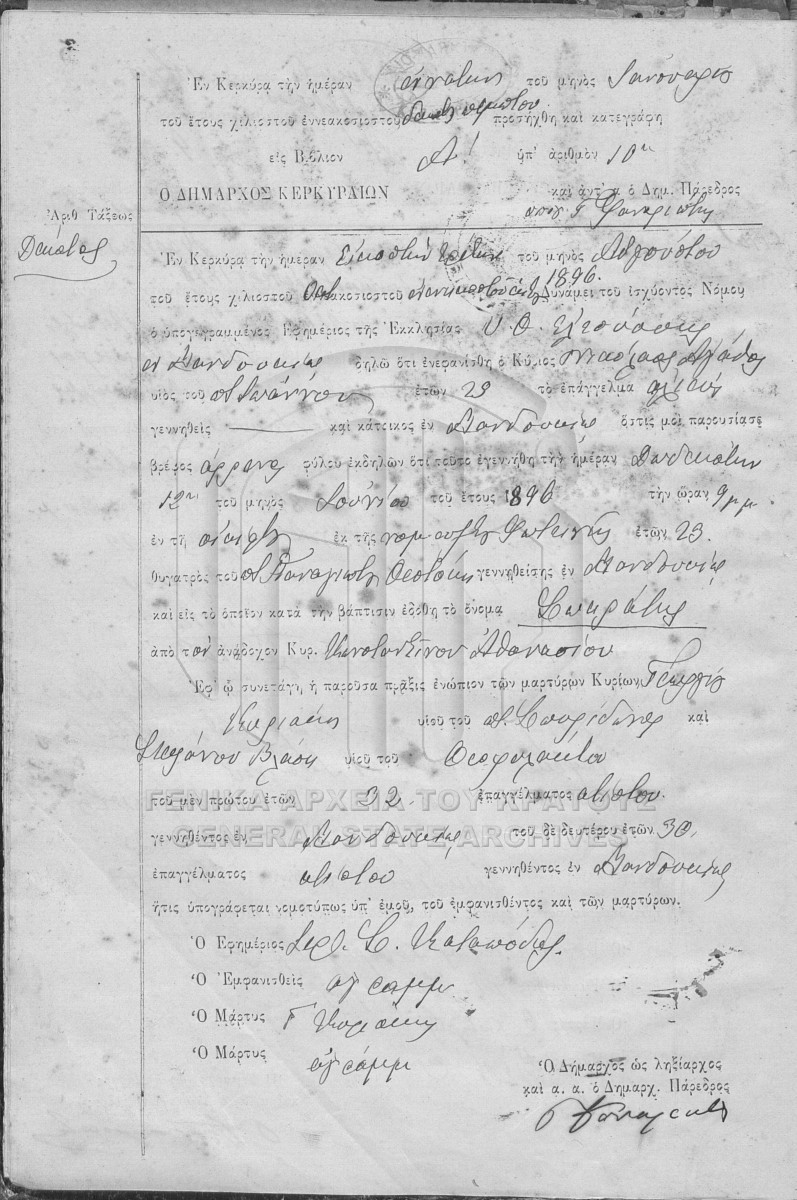 Ἐν Κερκύρᾳ τὴν ἡμέραν ἐννάτην τοῦ μηνὸς Ἰανουαρίου
τοῦ ἔτους χιλιοστοῦ ἐννεακοσιοστοῦ δεκάτου πέμπτου προσήχθη καὶ κατεγράφη
εἰς Βιβλίον Α! ὑπ' ἀριθμὸν 10
Ὁ ΔΗΜΑΡΧΟΣ ΚΕΡΚΥΡΑΙΩΝ
καὶ ἀντ' α ὁ Δημ. Πάρεδρος
Ἀριθ Τάξεως
Δέκατος
Ἐν Κερκύρᾳ τὴν ἡμέραν Εἰκοστὴν τρίτην τοῦ μηνὸς Αὐγούστου
τοῦ ἔτους χιλιοστοῦ Ὀκτακοσιοστοῦ ἐνενηκοστοῦ 1896 Δυνάμει τοῦ ἰσχύοντος Νόμου
ὁ ὑπογεγραμμένος Ἐφημέριος τῆς Ἐκκλησίας Υ. Θ. Ἐλεούσης
δηλῶ ὅτι ἐνεφανίσθη ὁ Κύριος
υἱὸς τοῦ Ἰωάννου ἐτῶν 29 τὸ ἐπάγγελμα ἁλιεύς
γεννηθεὶς καὶ κάτοικος ἐν ὅστις μοὶ παρουσίασε
βρέφος ἄρρενος φύλου ἐκδηλῶν ὅτι τοῦτο ἐγεννήθη τὴν ἡμέραν δωδεκάτην
12 τοῦ μηνὸς Ἰουνίου τοῦ ἔτους 1896 τὴν ὥραν 9 μμ
ἐν τῇ οἰκίᾳ ἐκ τῆς νομ συζύγου Φωτεινῆς ἐτῶν 23.
θυγατρὸς τοῦ Παναγιώτη γεννηθείσης ἐν
καὶ εἰς τὸ ὁποῖον κατὰ τὴν βάπτισιν ἐδόθη τὸ ὄνομα Σωκράτης
ἀπὸ τὸν ἀνάδοχον Κυρ. Κωνσταντῖνον Ἀθανασίου
Ἐφ' ᾧ συνετάγη ἡ παροῦσα πρᾶξις ἐνώπιον τῶν μαρτύρων Κυρίων, Γεωργίου
Κυριάκη υἱοῦ τοῦ π. Σπυρίδωνος καὶ
Στεφάνου Βλάση υἱοῦ τοῦ Θεοφυλάκτου
τοῦ μὲν πρώτου ἐτῶν 32 ἐπαγγέλματος κτίστου
γεννηθέντος ἐν τοῦ δὲ δευτέρου ἐτῶν 30
ἐπαγγέλματος κτίστου γεννηθέντος ἐν
ἥτις ὑπογράφεται νομοτύπως ὑπ' ἐμοῦ, τοῦ ἐμφανισθέντος καὶ τῶν μαρτύρων.
Ὁ Ἐφημέριος Σ. Κατωπόδης
Ὁ Ἐμφανισθεὶς ἀγράμμ
Ὁ Μάρτυς Γ Κυριάκης
Ὁ Μάρτυς ἀγράμμ
Ὁ Δήμαρχος ὡς ληξίαρχος
καὶ α. α. ὁ Δημαρχ. Πάρεδρος
ΓΕΝΙΚΑ ΑΡΧΕΙΑ ΤΟΥ ΚΡΑΤΟΥΣ
GENERAL STATE ARCHIVES